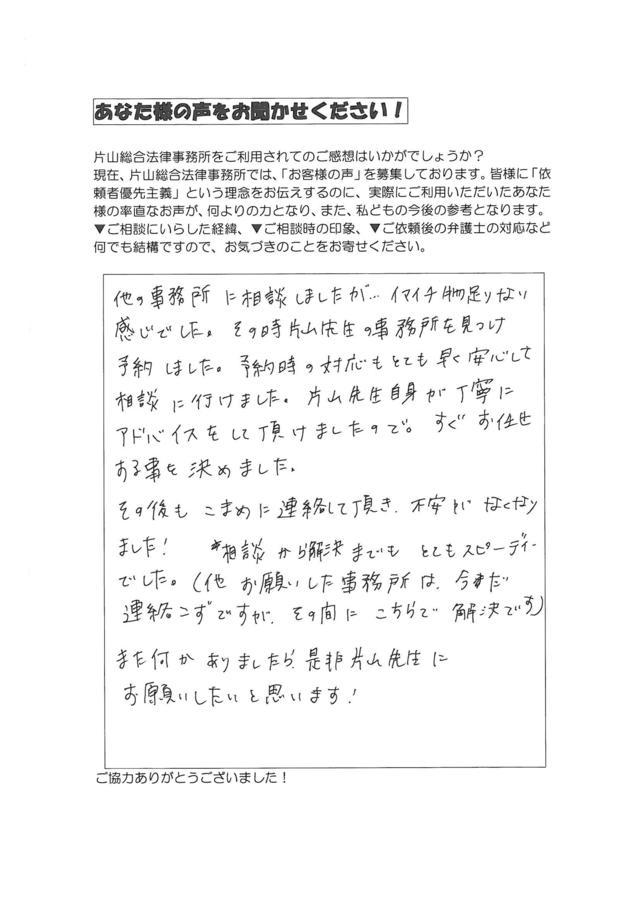 あなた様の声をお聞かせください！
片山総合法律事務所をご利用されてのご感想はいかがでしょうか？
現在、片山総合法律事務所では、「お客様の声」を募集しております。皆様に「依
頼者優先主義」という理念をお伝えするのに、実際にご利用いただいたあなた
様の率直なお声が、何よりの力となり、また、私どもの今後の参考となります。
▼ご相談にいらした経緯、▼ご相談時の印象、▼ご依頼後の弁護士の対応など
何でも結構ですので、お気づきのことをお寄せください。
他の事務所に相談しましたが…イマイチ物足りない
感じでした。その時片山先生の事務所を見つけ
予約しました。予約時の対応もとても早く安心して
相談に行けました。片山先生自身が丁寧に
アドバイスをして頂けましたので。すぐお任せ
する事を決めました。
その後もこまめに連絡して頂き、不安がなくなり
ました！ *相談から解決までもとてもスピーディー
でした。(他お願いした事務所は、今まだ
連絡こずですが、その間にこちらで解決です)
また何かありましたら、是非片山先生に
お願いしたいと思います！
ご協力ありがとうございました！